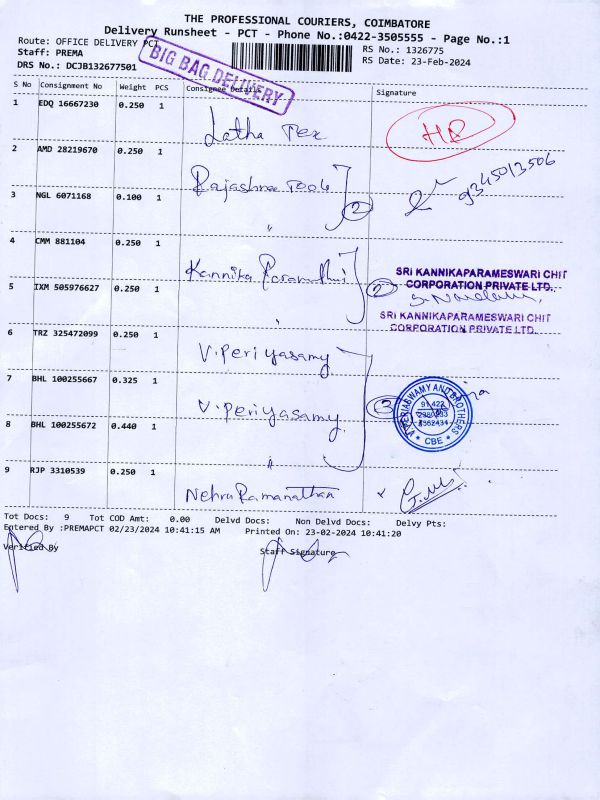 THE PROFESSIONAL COURIERS, COIMBATORE
Delivery Runsheet - PCT - Phone No.:0422-3505555 - Page No.:1
Route: OFFICE DELIVERY PCT
RS No.: 1326775
Staff: PREMA
RS Date: 23-Feb-2024
DRS No.: DCJB132677501
BIG BAG DELIVERY
S No Consignment No Weight PCS Consignee Details Signature
1 EDQ 16667230 0.250 1
Latha Tex
2 AMD 28219670 0.250 1
9345013506
Rajashree
3 NGL 6071168 0.100 1
2
"
4 CMM 881104 0.250 1
Kannika
SRI KANNIKAPARAMESWARI CHIT
CORPORATION PRIVATE LTD.
5 IXM 505976627 0.250 1
2
SRI KANNIKAPARAMESWARI CHIT
CORPORATION PRIVATE LTD.
6 TRZ 325472099 0.250 1
V. Periyasamy
7 BHL 100255667 0.325 1
V. Periyasamy
3
AND BROTHERS
CBE
8 BHL 100255672 0.440 1
"
9 RJP 3310539 0.250 1
Nehru Ramanathan
Tot Docs: 9 Tot COD Amt: 0.00 Delvd Docs: Non Delvd Docs: Delvy Pts:
Entered By :PREMAPCT 02/23/2024 10:41:15 AM Printed On: 23-02-2024 10:41:20
Verified By Staff Signature